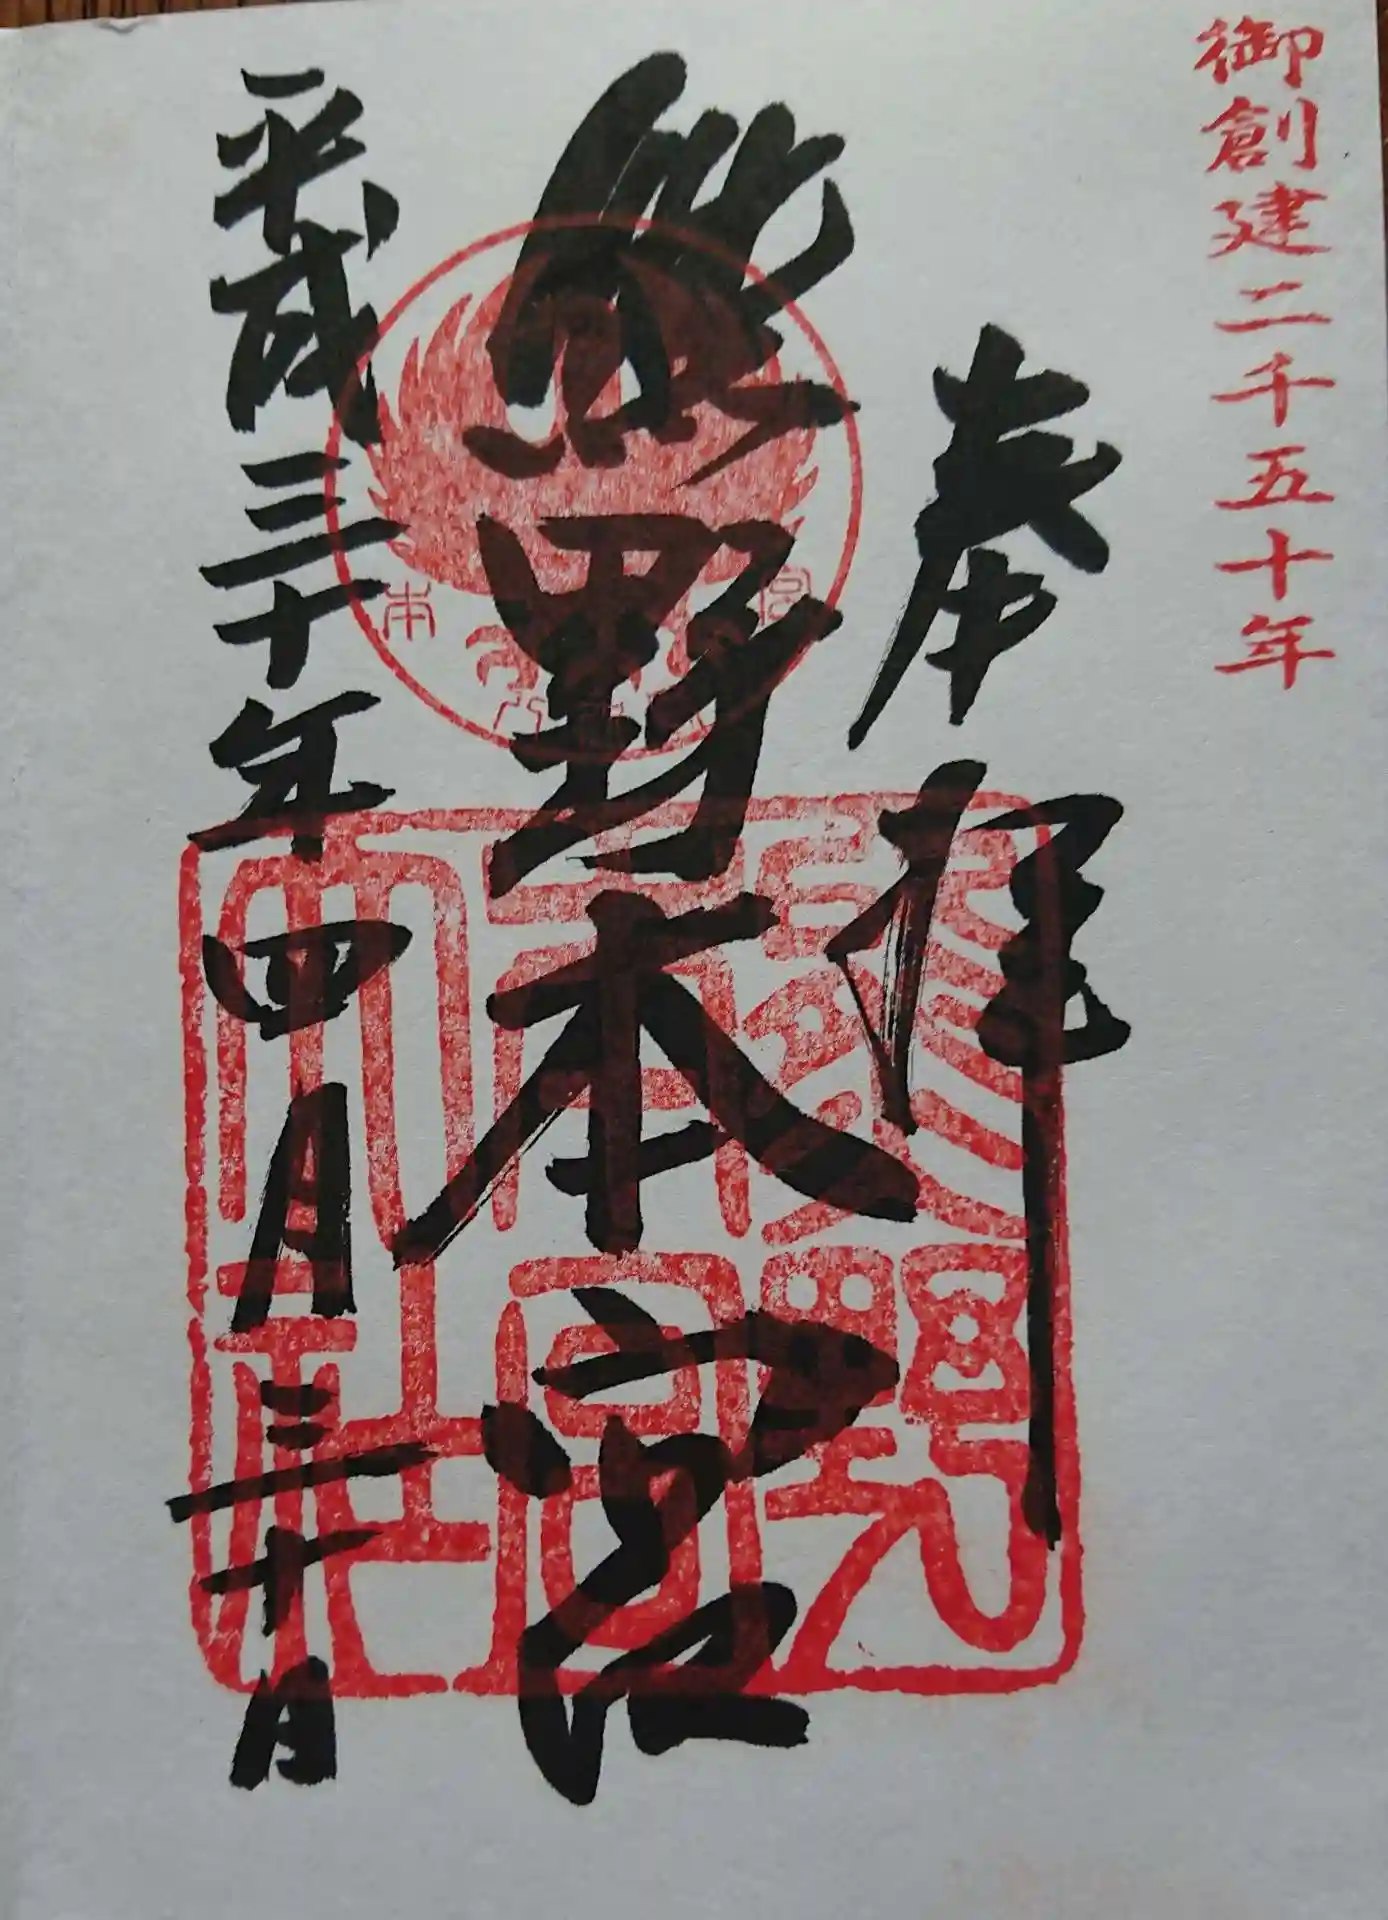 御創建二千五十年
奉拝
熊野本宮
平成三十年四月三十日
熊野
本宮
大社